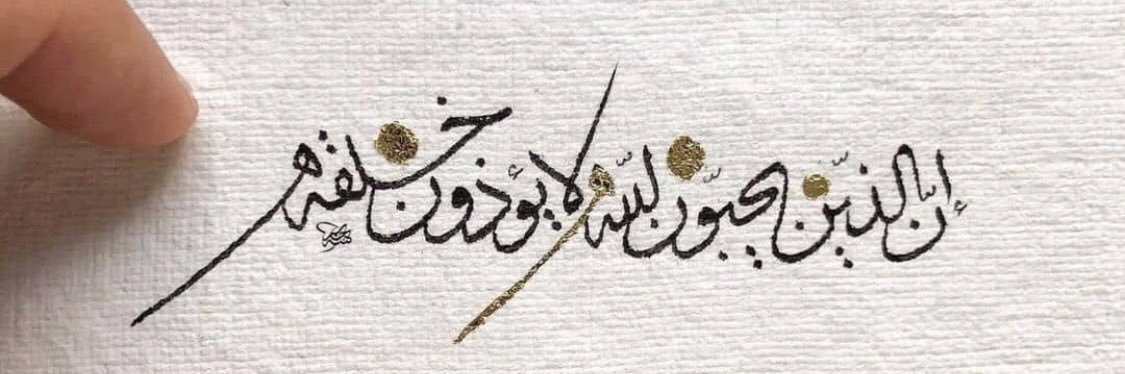 إنّ الذين يحبّون للّٰه لا يؤذون خلقه